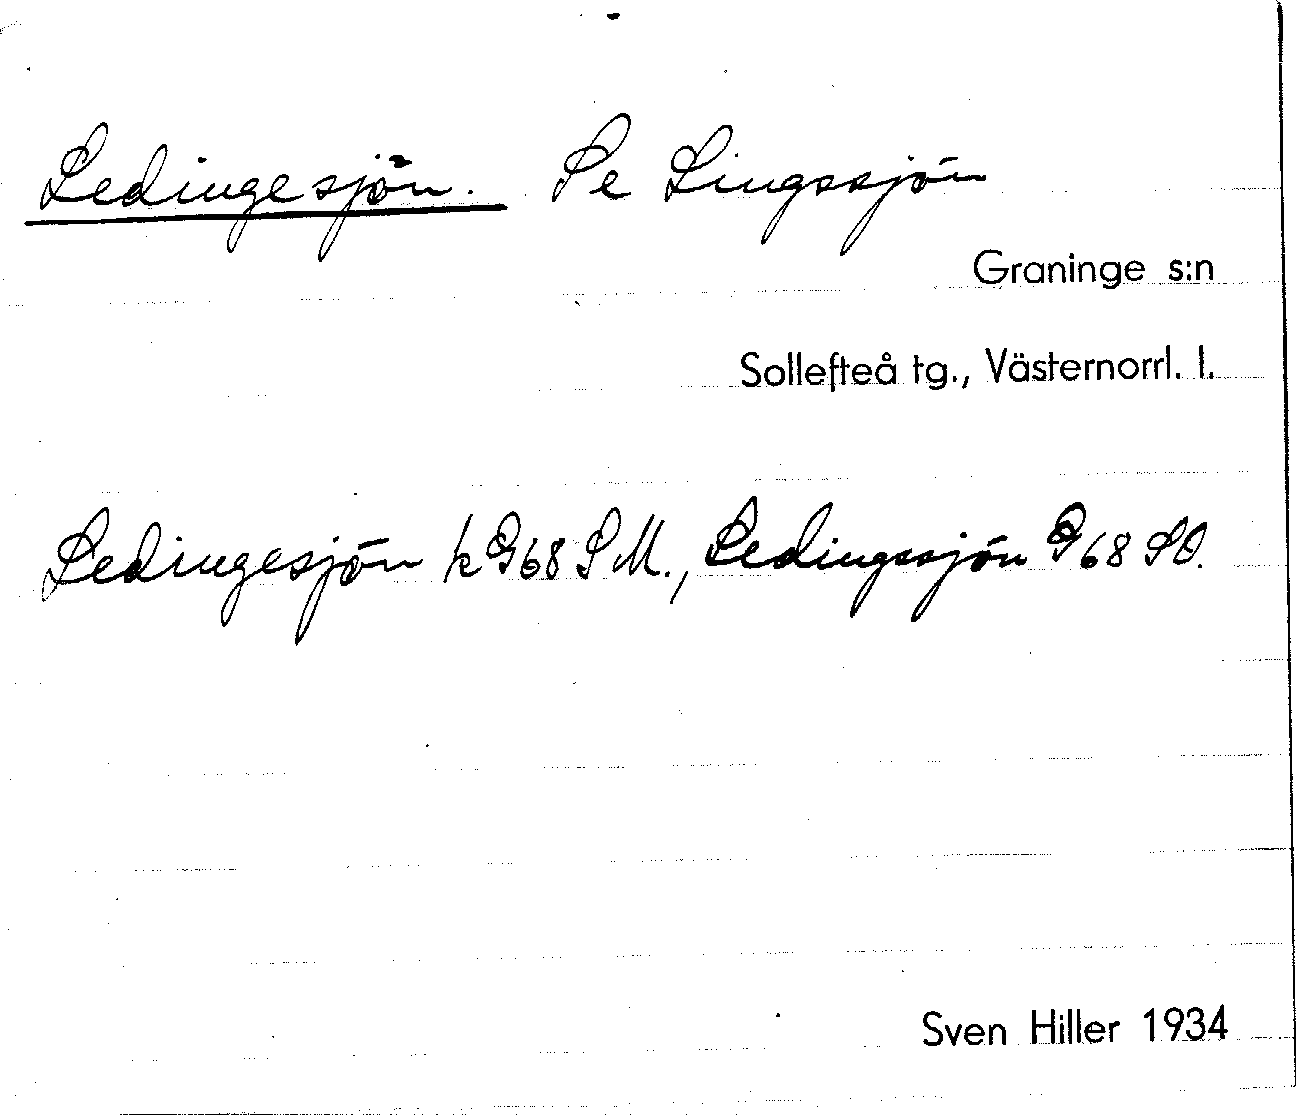 Ledingesjön. Se Lingssjön
Graninge s:n
Sollefteå tg., Västernorrl. l.
Ledingesjön k G68 SM., Ledingssjön G68 SO.
Sven Hiller 1934